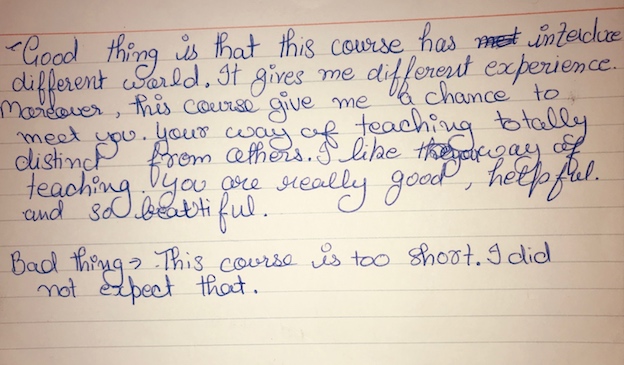 - Good thing is that this course has interduce
different world. It gives me different experience.
Moreover, this course give me a chance to
meet you. Your way of teaching totally
distinct from others. I like way of
teaching. You are really good, helpful.
and so beautiful.
Bad thing → This course is too short. I did
not expect that.